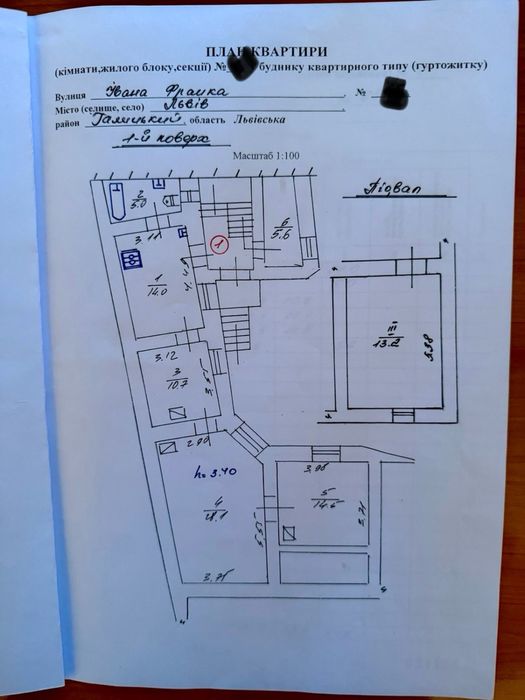 ПЛАН КВАРТИРИ
(кімнати,жилого блоку,секції) № будинку квартирного типу (гуртожитку)
Вулиця Івана Франка №
Місто (селище, село) Львів
район Галицький, область Львівська
1-й поверх
Масштаб 1:100
Підвал
2
5.0
6
5.6
1
3.11
1
14.0
4.45
III
13.2
3.98
3.12
3
10.7
3.51
2.90
h= 3.40
3.98
5
14.5
4
21.1
5.55
3.71
3.75